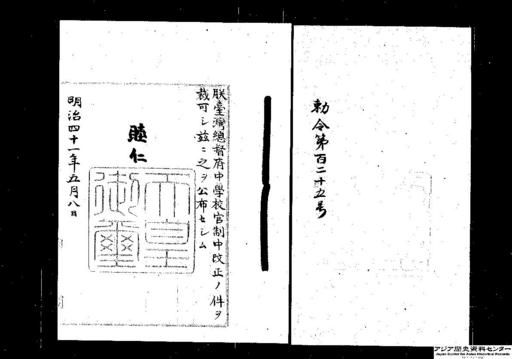 勅令第百二十五号
朕臺灣總督府中學校官制中改正ノ件ヲ
裁可シ茲ニ之ヲ公布セシム
睦仁
天皇
御璽
明治四十一年五月八日
アジア歴史資料センター
Japan Center for Asian Historical Records